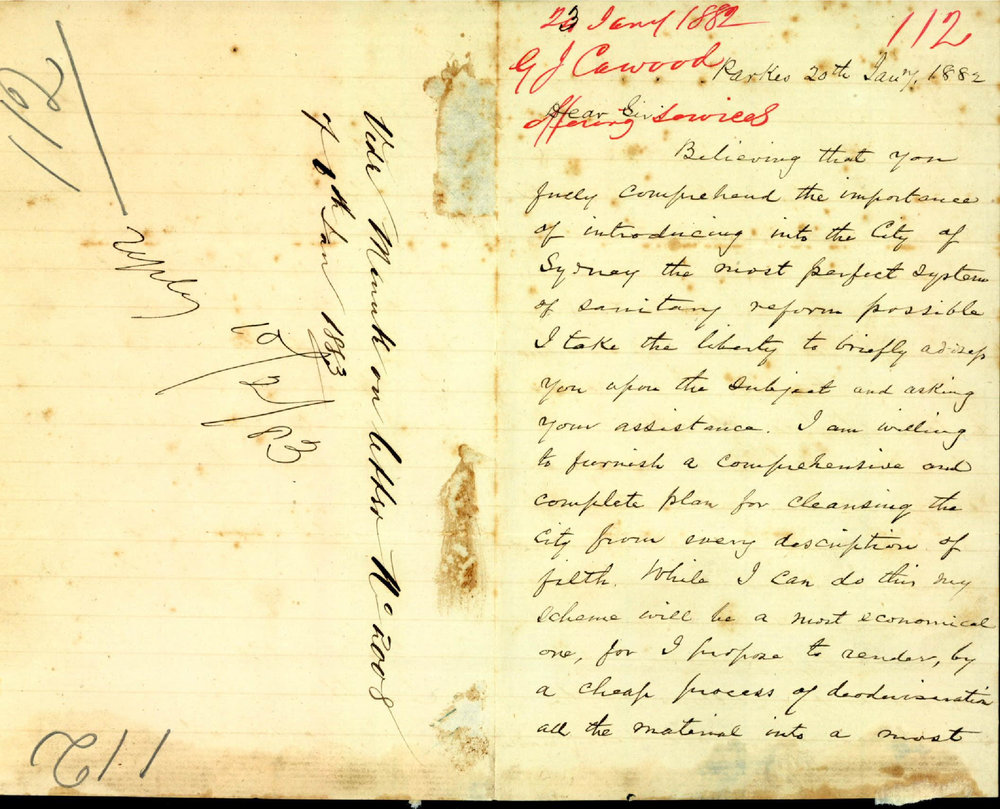 112
reply
10/2/83
Vide Minute on letter No 2008
of 6th Jan 1883
112
23 Jany 1882
112
G J Cawood
Offering services
Parkes 20th Jany, 1882
Dear Sir
Believing that you
fully comprehend the importance
of introducing into the City of
Sydney the most perfect system
of sanitary reform possible
I take the liberty to briefly address
you upon the subject and asking
your assistance. I am willing
to furnish a comprehensive and
complete plan for cleansing the
City from every description of
filth. While I can do this my
scheme will be a most economical
one, for I propose to render, by
a cheap process of deodorisation
all the material into a most